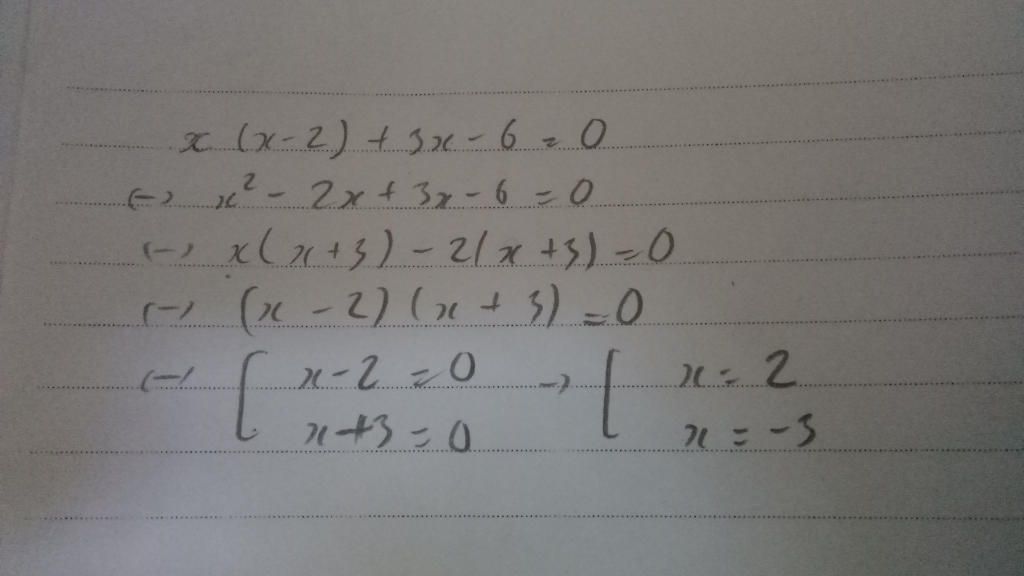 x (x-2) + 3x - 6 = 0
<-> x² - 2x + 3x - 6 = 0
<-> x(x+3) - 2(x+3) = 0
<-> (x-2)(x+3) = 0
<-> [ x-2 = 0 -> [ x = 2
x+3 = 0 x = -3